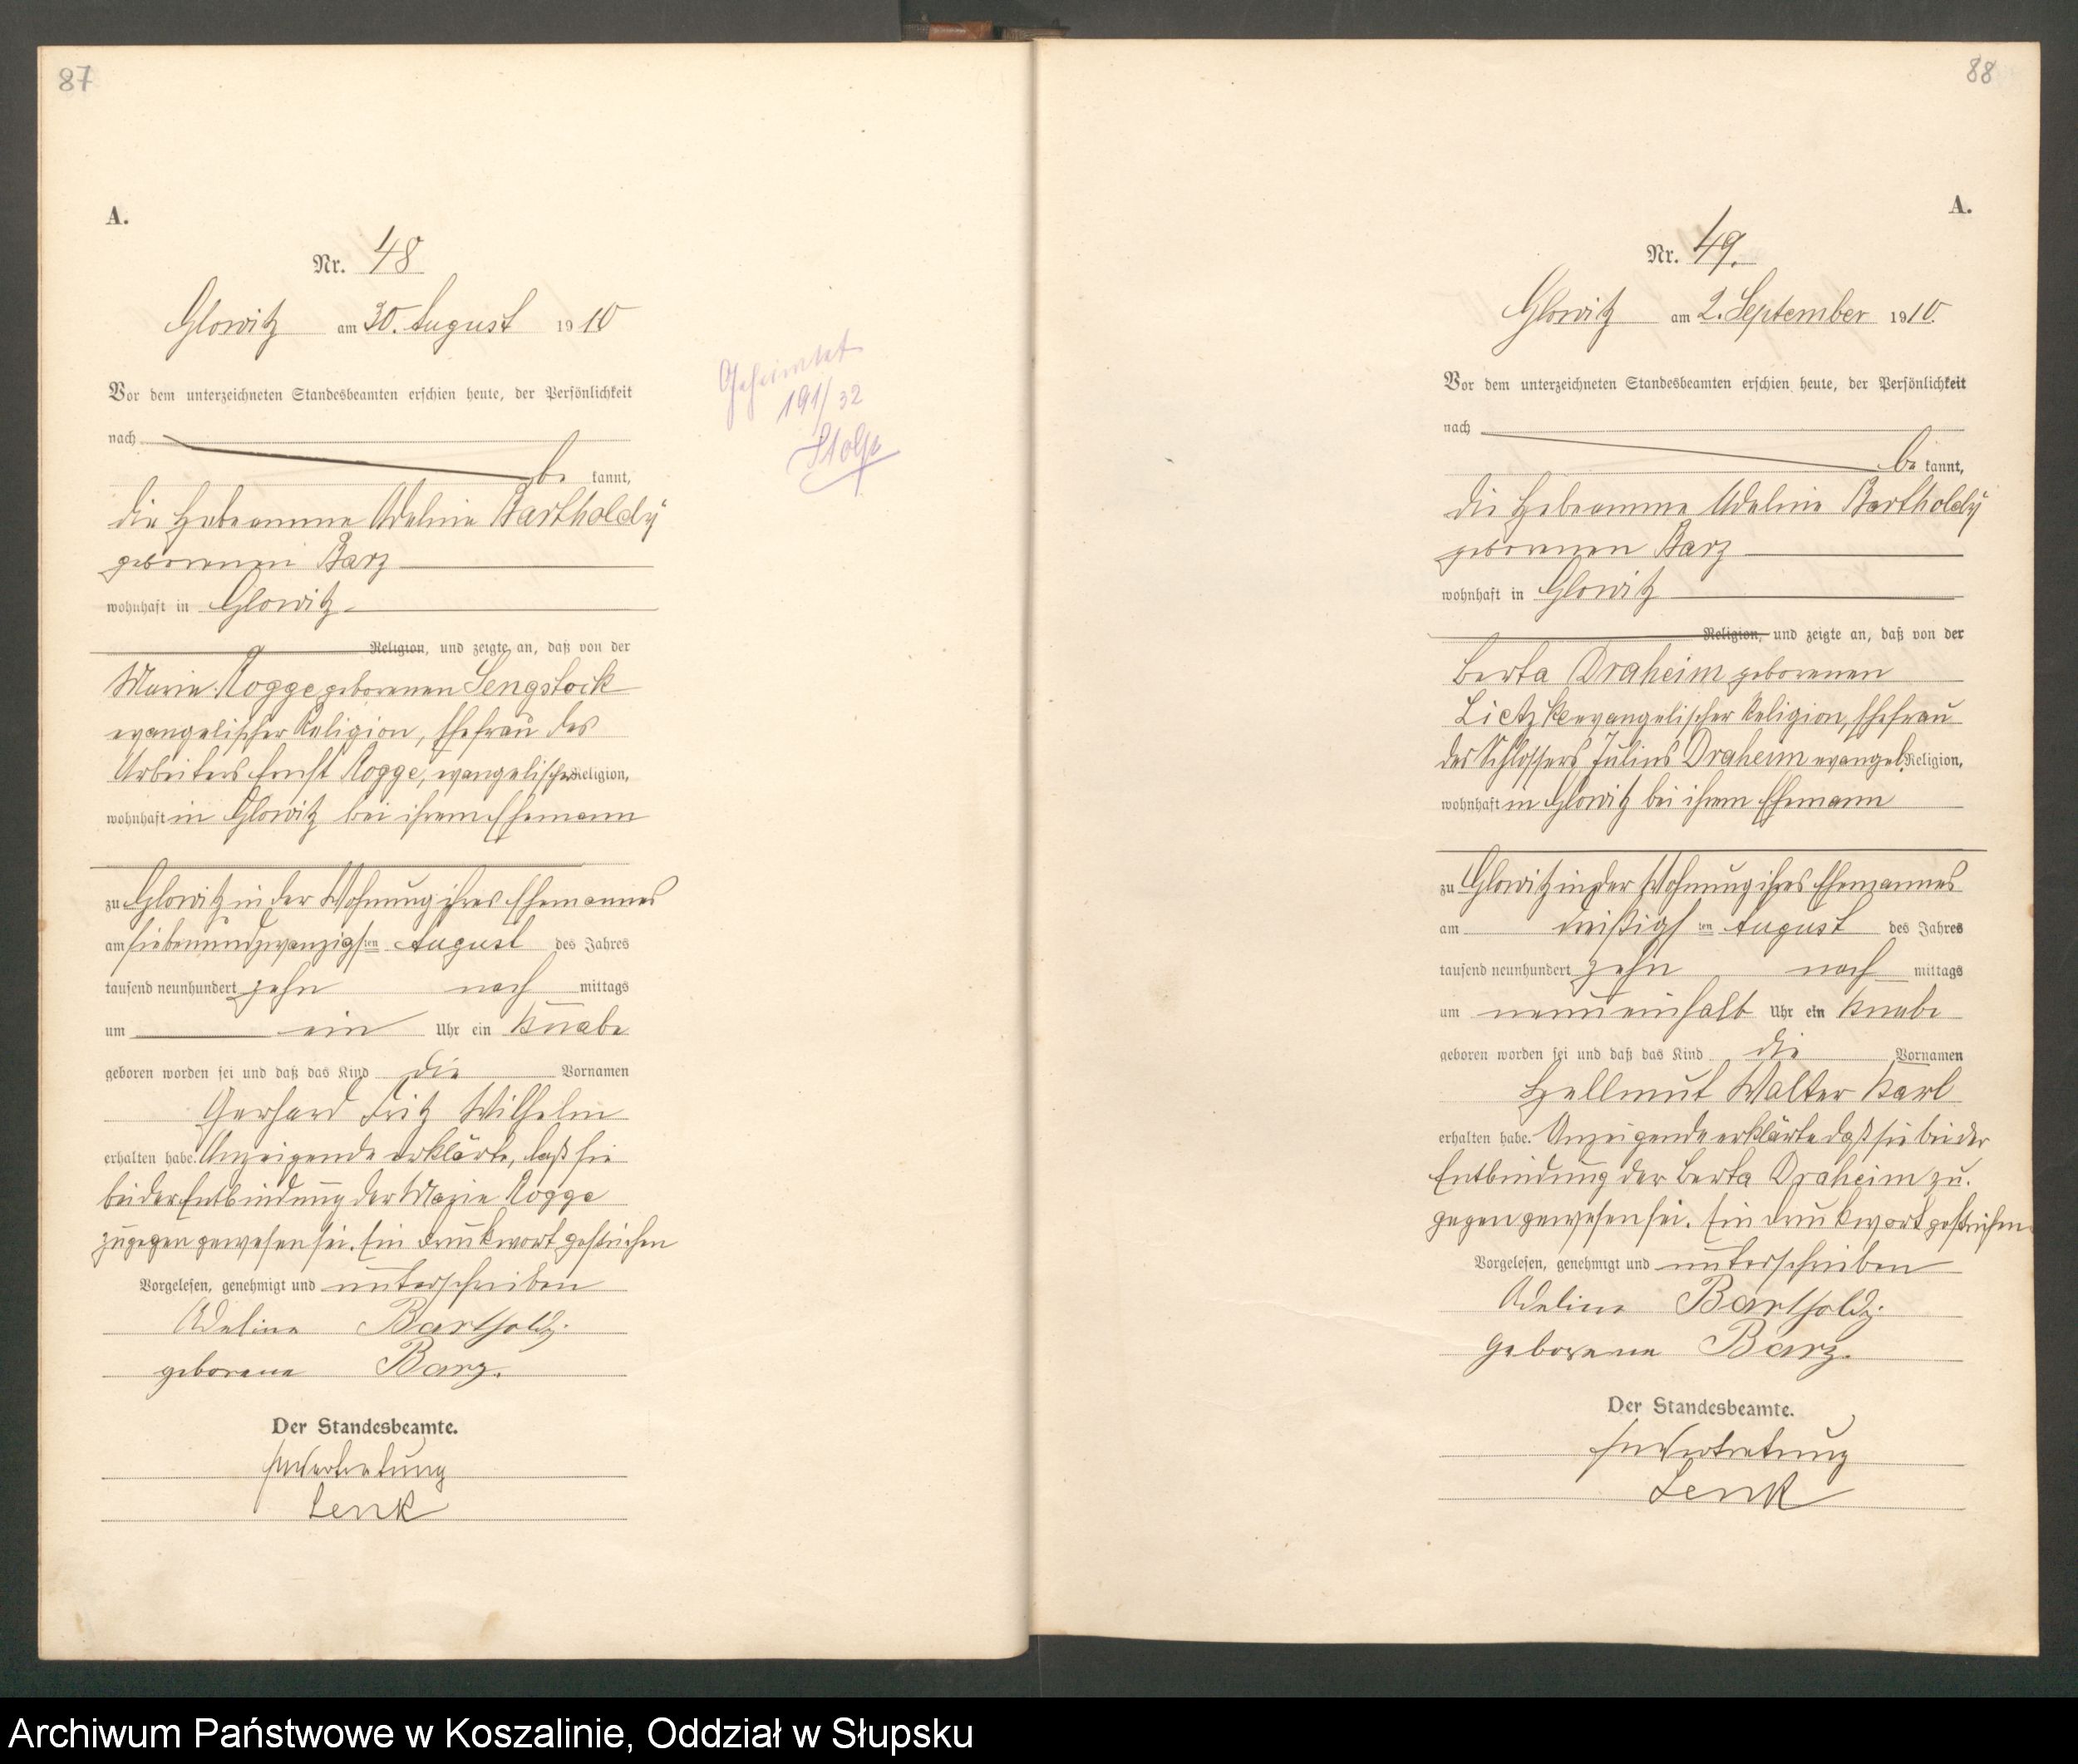 87
A.
Nr. 48
Glowitz am 30. August 1910
Vor dem unterzeichneten Standesbeamten erschien heute, der Persönlichkeit
nach
be kannt,
die Hebeamme Adeline Bartholdy
geborenen Barz
wohnhaft in Glowitz
Religion, und zeigte an, daß von der
Marie Rogge geborenen Sengstock
evangelischer Religion, Ehefrau des
Arbeiters Ernst Rogge, evangelischer Religion,
wohnhaft in Glowitz bei ihrem Ehemann
zu Glowitz in der Wohnung ihres Ehemannes
am siebenundzwanzigsten August des Jahres
tausend neunhundert zehn nach mittags
um ein Uhr ein Knabe
geboren worden sei und daß das Kind die Vornamen
Gerhard Fritz Wilhelm
erhalten habe. Anzeigende erklärte, daß sie
bei der Entbindung der Marie Rogge
zugegen gewesen sei. Ein Druckwort gestrichen
Vorgelesen, genehmigt und unterschrieben
Adeline Bartholdy
geborene Barz.
Der Standesbeamte.
In Vertretung
Lenk
Geheiratet
191/32
Stolp
88
A.
Nr. 49.
Glowitz am 2. September 1910.
Vor dem unterzeichneten Standesbeamten erschien heute, der Persönlichkeit
nach
be kannt,
die Hebeamme Adeline Bartholdy
geborenen Barz
wohnhaft in Glowitz
Religion, und zeigte an, daß von der
Berta Draheim geborenen
Lietzke evangelischer Religion, Ehefrau
des Schlossers Julius Draheim evangel. Religion,
wohnhaft in Glowitz bei ihrem Ehemann
zu Glowitz in der Wohnung ihres Ehemannes
am dreißigsten August des Jahres
tausend neunhundert zehn nach mittags
um neuneinhalb Uhr ein Knabe
geboren worden sei und daß das Kind die Vornamen
Hellmut Walter Karl
erhalten habe. Anzeigende erklärte daß sie bei der
Entbindung der Berta Draheim zu-
gegen gewesen sei. Ein Druckwort gestrichen.
Vorgelesen, genehmigt und unterschrieben
Adeline Bartholdy
geborene Barz.
Der Standesbeamte.
In Vertretung
Lenk
Archiwum Państwowe w Koszalinie, Oddział w Słupsku